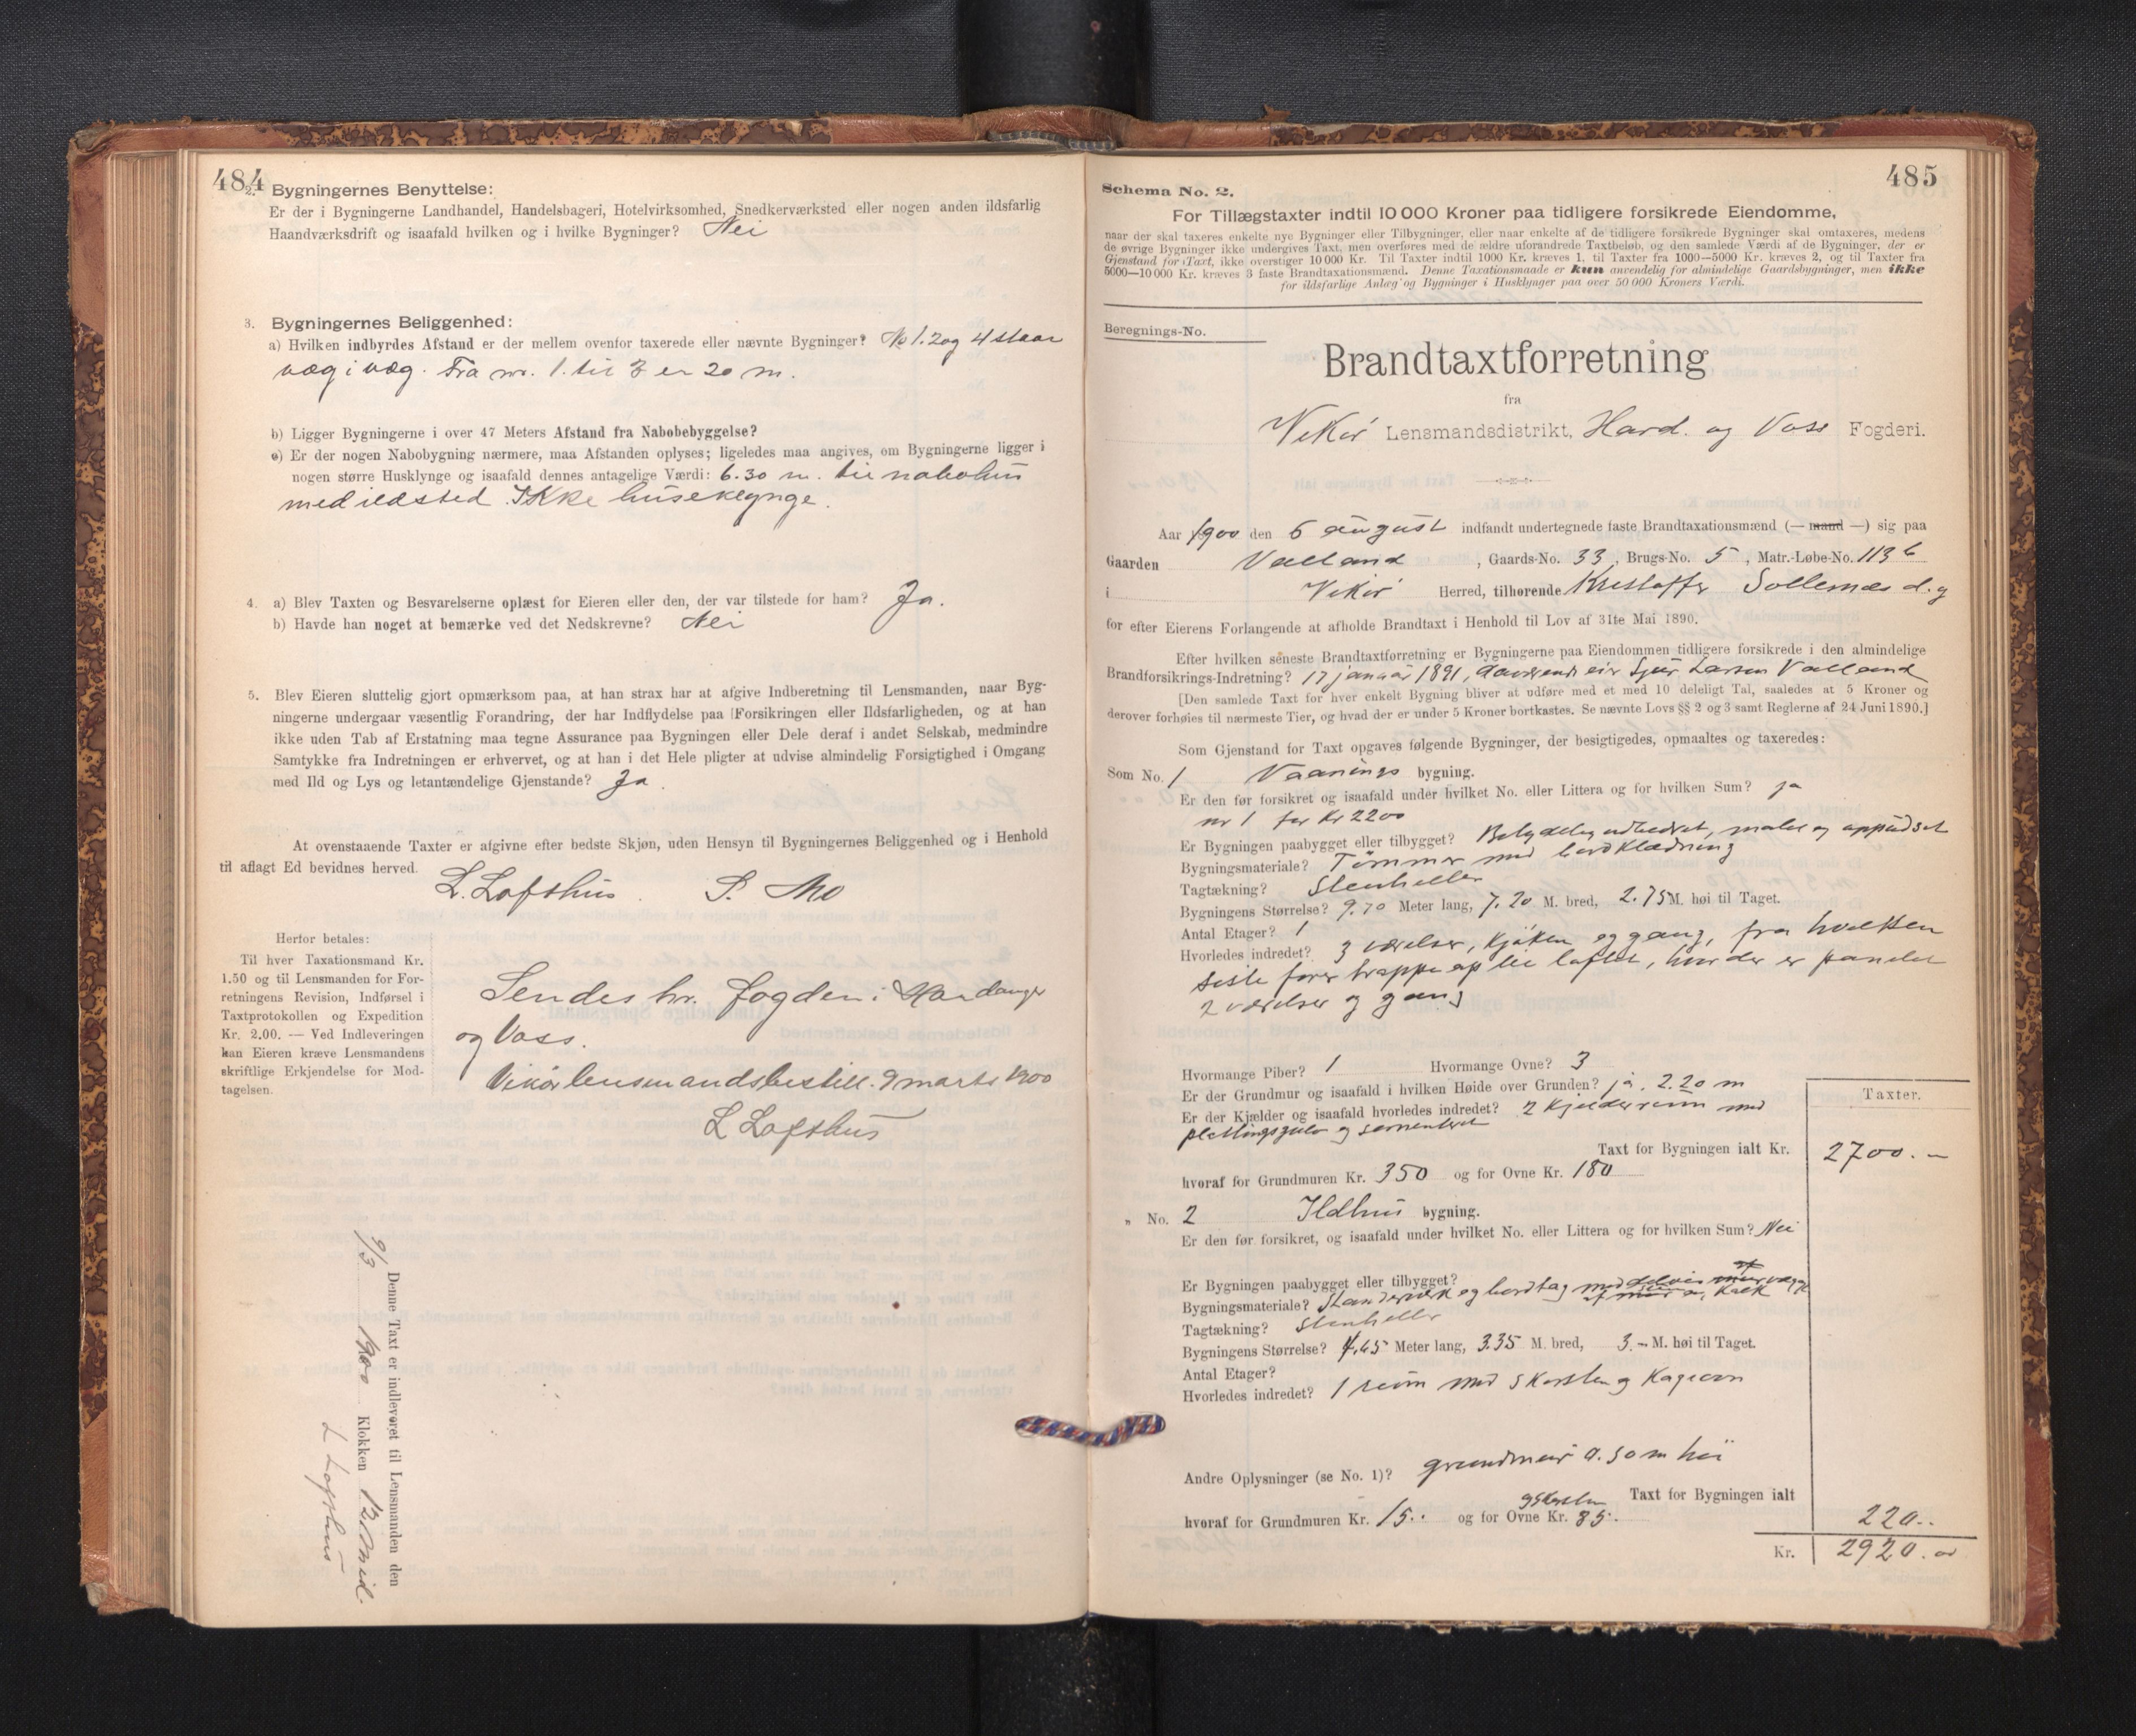 484
2. Bygningernes Benyttelse:
Er der i Bygningerne Landhandel, Handelsbageri, Hotelvirksomhed, Snedkerværksted eller nogen anden ildsfarlig
Haandværksdrift og isaafald hvilken og i hvilke Bygninger? Nei
3. Bygningernes Beliggenhed:
a) Hvilken indbyrdes Afstand er der mellem ovenfor taxerede eller nævnte Bygninger? No 1. 2 og 4 staar
væg i væg. Fra nr. 1. til 3 er 20 m.
b) Ligger Bygningerne i over 47 Meters Afstand fra Nabobebyggelse?
c) Er der nogen Nabobygning nærmere, maa Afstanden oplyses; ligeledes maa angives, om Bygningerne ligger i
nogen større Husklynge og isaafald dennes antagelige Værdi: 6.30 m. til nabohus
med ildsted. Ikke huseklynge.
4. a) Blev Taxten og Besvarelserne oplæst for Eieren eller den, der var tilstede for ham? Ja.
b) Havde han noget at bemærke ved det Nedskrevne? Nei
5. Blev Eieren sluttelig gjort opmærksom paa, at han strax har at afgive Indberetning til Lensmanden, naar Byg-
ningerne undergaar væsentlig Forandring, der har Indflydelse paa Forsikringen eller Ildsfarligheden, og at han
ikke uden Tab af Erstatning maa tegne Assurance paa Bygningen eller Dele deraf i andet Selskab, medmindre
Samtykke fra Indretningen er erhvervet, og at han i det Hele pligter at udvise almindelig Forsigtighed i Omgang
med Ild og Lys og letantændelige Gjenstande? Ja.
At ovenstaaende Taxter er afgivne efter bedste Skjøn, uden Hensyn til Bygningernes Beliggenhed og i Henhold
til aflagt Ed bevidnes herved.
L. Lofthus. S. Mo
Herfor betales:
Til hver Taxationsmand Kr.
1.50 og til Lensmanden for For-
retningens Revision, Indførsel i
Taxtprotokollen og Expedition
Kr. 2.00. — Ved Indleveringen
kan Eieren kræve Lensmandens
skriftlige Erkjendelse for Mod-
tagelsen.
Sendes hr. Fogden i Hardanger
og Voss.
Vikør lensmandsbestill. 9 marts 1900
L Lofthus
Denne Taxt er indleveret til Lensmanden den
9/3 1900 Klokken 12 Mid.
L Lofthus
485
Schema No. 2.
For Tillægstaxter indtil 10 000 Kroner paa tidligere forsikrede Eiendomme,
naar der skal taxeres enkelte nye Bygninger eller Tilbygninger, eller naar enkelte af de tidligere forsikrede Bygninger skal omtaxeres, medens
de øvrige Bygninger ikke undergives Taxt, men overføres med de ældre uforandrede Taxtbeløb, og den samlede Værdi af de Bygninger, der er
Gjenstand for Taxt, ikke overstiger 10 000 Kr. Til Taxter indtil 1000 Kr. kræves 1, til Taxter fra 1000—5000 Kr. kræves 2, og til Taxter fra
5000—10 000 Kr. kræves 3 faste Brandtaxationsmænd. Denne Taxationsmaade er kun anvendelig for almindelige Gaardsbygninger, men ikke
for ildsfarlige Anlæg og Bygninger i Husklynger paa over 50 000 Kroners Værdi.
Beregnings-No.
Brandtaxtforretning
fra
Vikør Lensmandsdistrikt, Hard. og Voss Fogderi.
Aar 1900 den 6 august indfandt undertegnede faste Brandtaxationsmænd (— mand —) sig paa
Gaarden Valland, Gaards-No. 33, Brugs-No. 5, Matr.-Løbe-No. 113 b
i Vikør Herred, tilhørende Kristoffer Sollesnes d.y
for efter Eierens Forlangende at afholde Brandtaxt i Henhold til Lov af 31te Mai 1890.
Efter hvilken seneste Brandtaxtforretning er Bygningerne paa Eiendommen tidligere forsikrede i den almindelige
Brandforsikrings-Indretning? 17 januar 1891, daværende eier Sjur Larsen Valland
[Den samlede Taxt for hver enkelt Bygning bliver at udføre med et med 10 deleligt Tal, saaledes at 5 Kroner og
derover forhøies til nærmeste Tier, og hvad der er under 5 Kroner bortkastes. Se nævnte Lovs §§ 2 og 3 samt Reglerne af 24 Juni 1890.]
Som Gjenstand for Taxt opgaves følgende Bygninger, der besigtigedes, opmaaltes og taxeredes:
Som No. 1 Vaanings bygning.
Er den før forsikret og isaafald under hvilket No. eller Littera og for hvilken Sum? ja
nr 1 for Kr 2200
Er Bygningen paabygget eller tilbygget? Betydelig udbedret, malet og oppudset
Bygningsmateriale? Tømmer med bordklædning
Tagtækning? Stenheller
Bygningens Størrelse? 9.70 Meter lang, 7.20 M. bred, 2.75 M. høi til Taget.
Antal Etager? 1
Hvorledes indredet? 3 værelser, kjøken og gang, fra hvilken
siste fører trappe op til loftet, hvor der er panelet
2 værelser og gang
Hvormange Piber? 1 Hvormange Ovne? 3
Er der Grundmur og isaafald i hvilken Høide over Grunden? ja. 2.20 m
Er der Kjælder og isaafald hvorledes indredet? 2 kjælderrum med
plettingsgulv og sementeret
Taxter.
Taxt for Bygningen ialt Kr. 2700.-
hvoraf for Grundmuren Kr. 350 og for Ovne Kr. 180
" No. 2 Ildhus bygning.
Er den før forsikret, og isaafald under hvilket No. eller Littera og for hvilken Sum? Nei
Er Bygningen paabygget eller tilbygget?
Bygningsmateriale? Standerværk og bordtag med
Tagtækning? Stenheller
Bygningens Størrelse? 4.65 Meter lang, 3.35 M. bred, 3.- M. høi til Taget.
Antal Etager?
Hvorledes indredet? 1 rum med skorsten og kageovn
Andre Oplysninger (se No. 1)? grundmur 0.50 m høi
Taxt for Bygningen ialt 220..
hvoraf for Grundmuren Kr. 15.. og for Ovne Kr. 85.
og skorsten
Kr. 2920.00